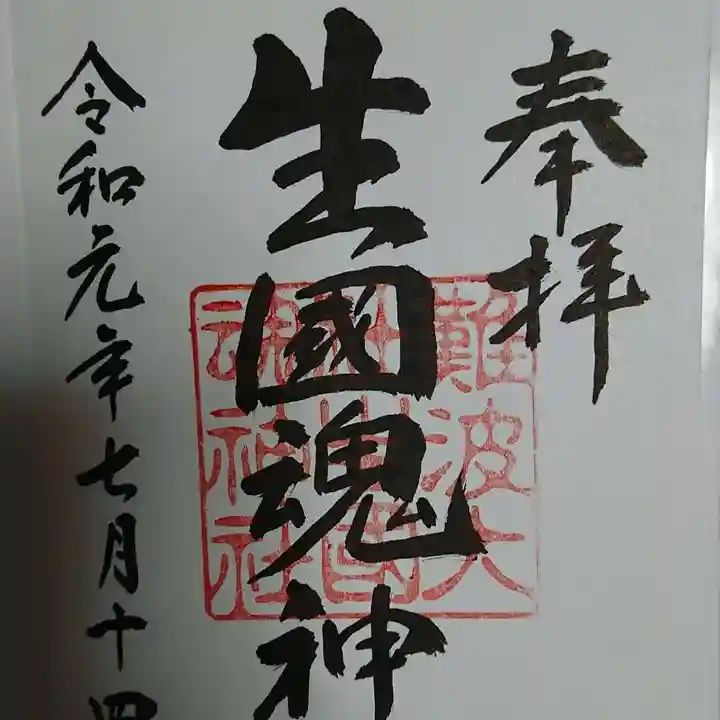 奉拝
生國魂神
令和元年七月十四
難波大
社生國
魂神社